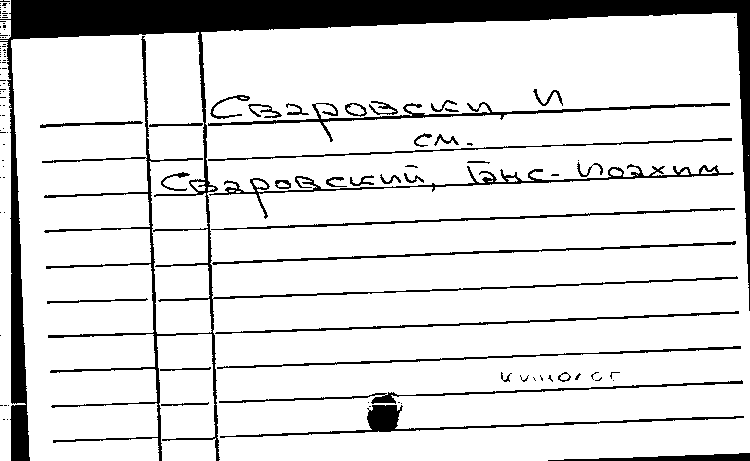 Сваровски, И
см.
Сваровский, Ганс-Иоахим
кинолог